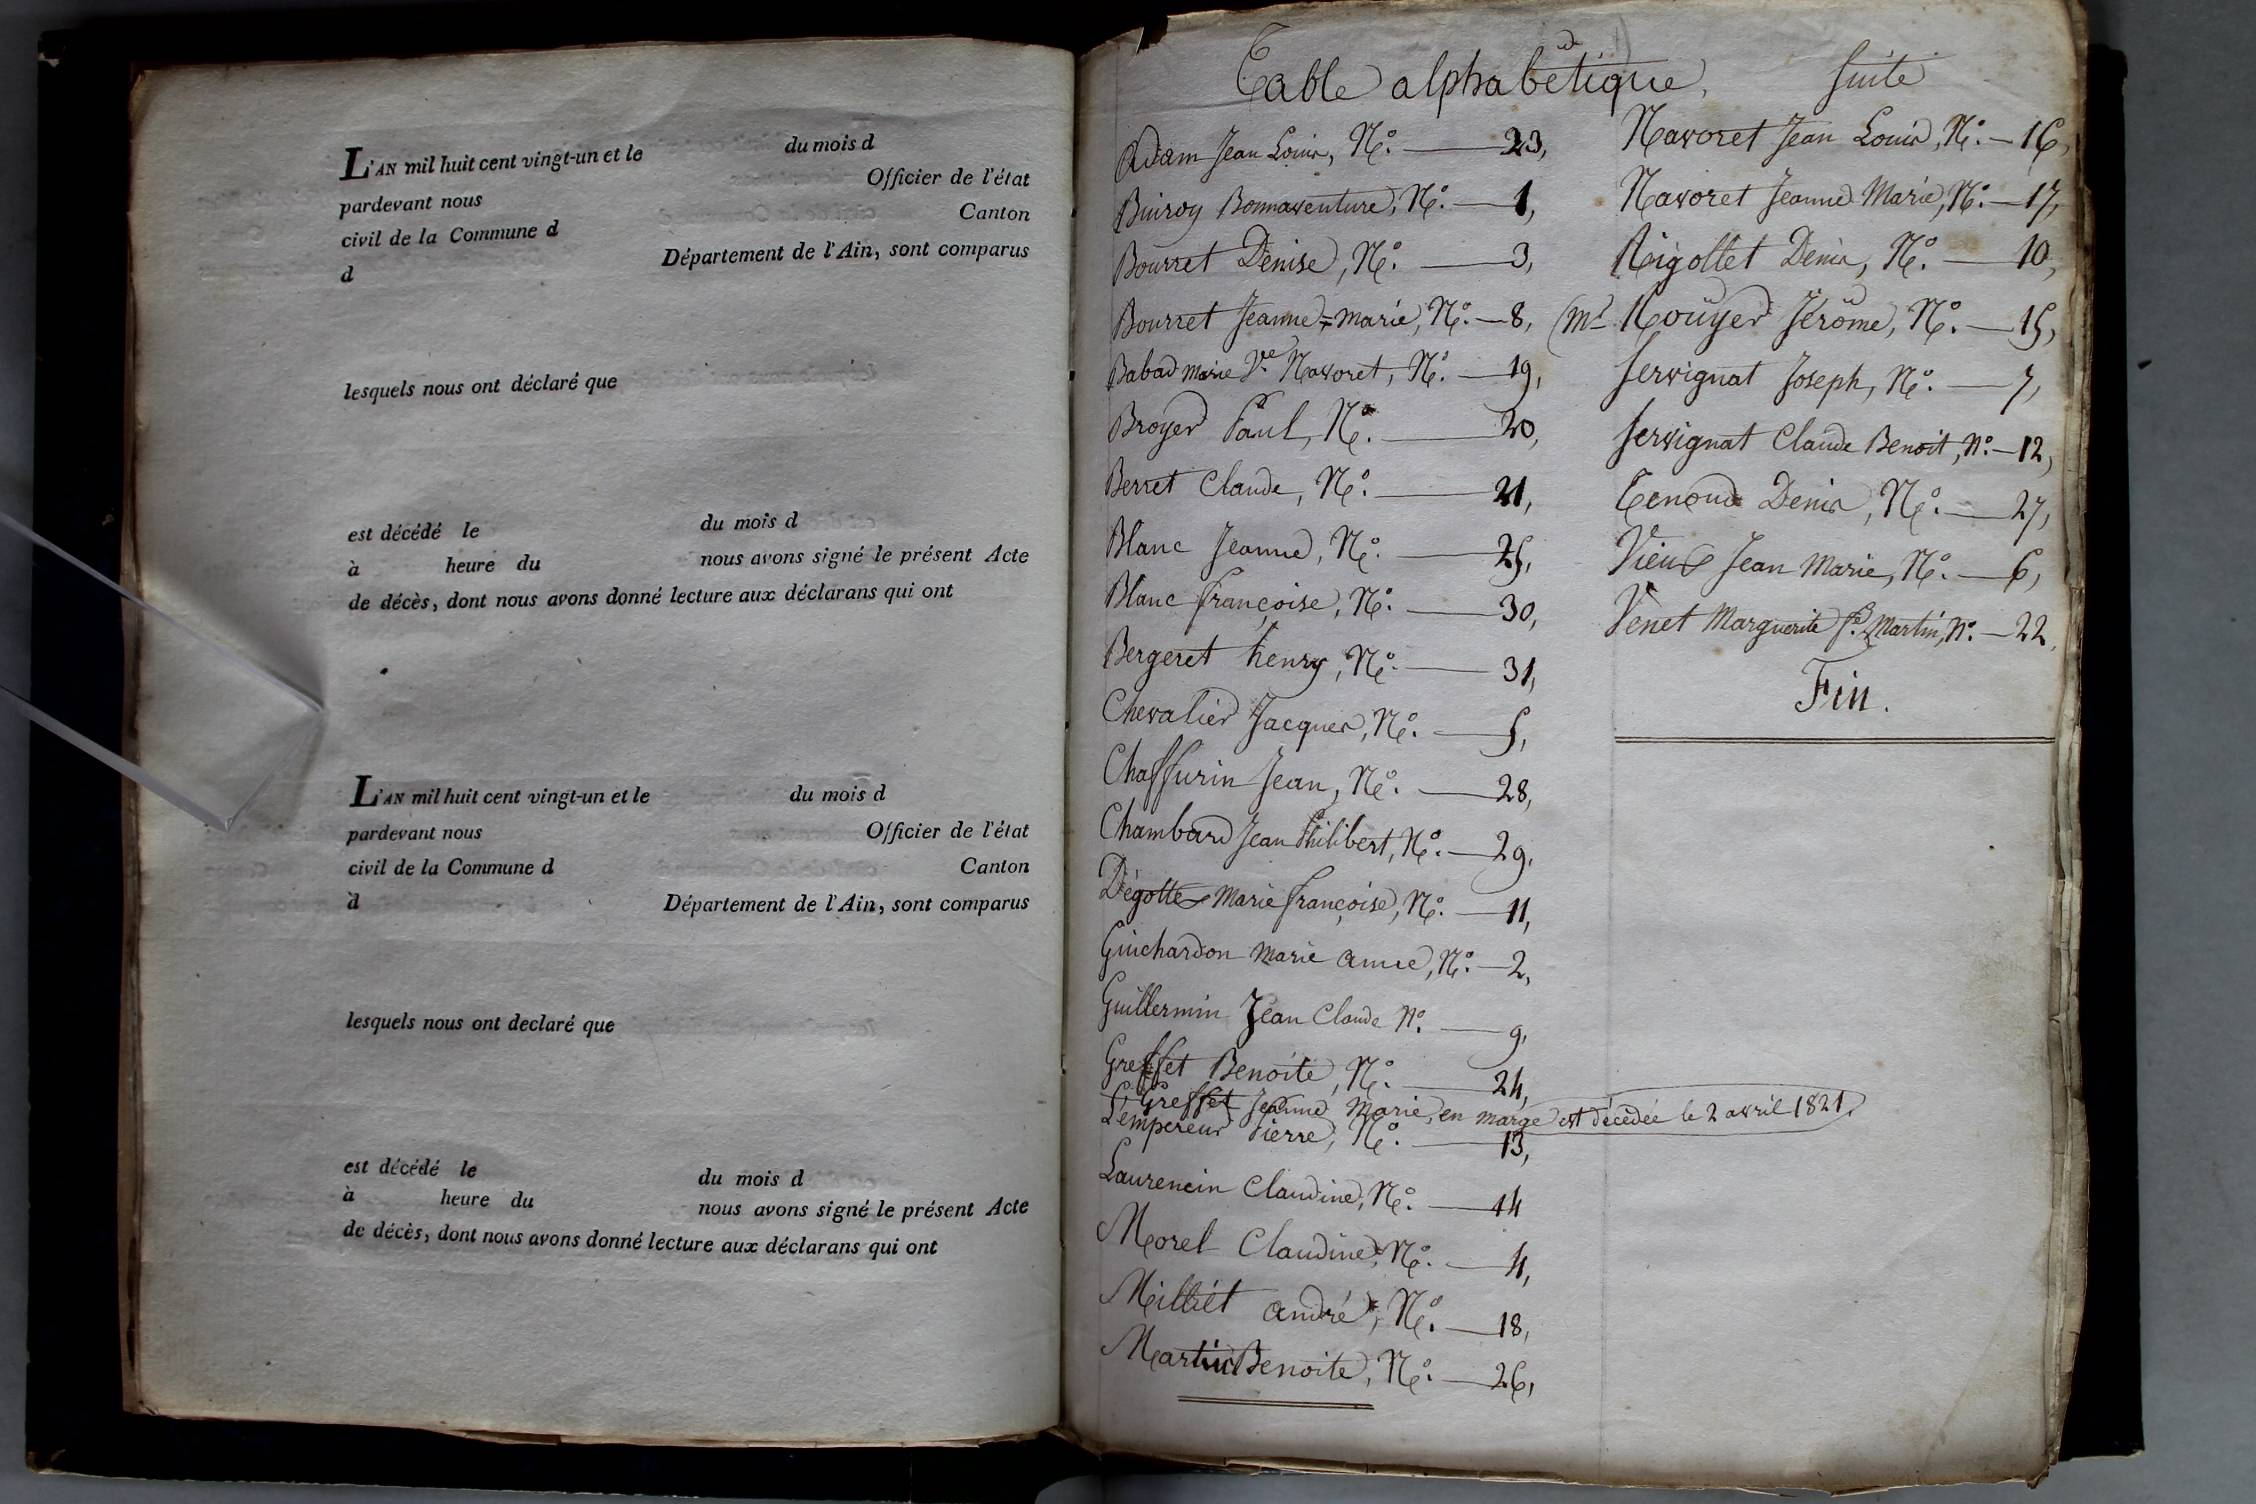 L'AN mil huit cent vingt-un et le du mois d
pardevant nous Officier de l'état
civil de la Commune d Canton
d Département de l'Ain, sont comparus
lesquels nous ont déclaré que
est décédé le du mois d
à heure du nous avons signé le présent Acte
de décès, dont nous avons donné lecture aux déclarans qui ont
L'AN mil huit cent vingt-un et le du mois d
pardevant nous Officier de l'état
civil de la Commune d Canton
d Département de l'Ain, sont comparus
lesquels nous ont declaré que
est décédé le du mois d
à heure du nous avons signé le présent Acte
de décès, dont nous avons donné lecture aux déclarans qui ont
Table alphabétique,
Adam Jean Louis, N°. — 23,
Buiroy Bonnaventure, N°. — 1,
Bourret Denise, N°. — 3,
Bourret Jeanne=marie, N°. — 8,
Babad marie Ve Navoret, N°. — 19,
Broyer Paul, N°. — 20,
Berret Claude, N°. — 21,
Blanc Jeanne, N°. — 25,
Blanc françoise, N°. — 30,
Bergeret henry, N°. — 31,
Chevalier Jacques, N°. — 5,
Chaffurin Jean, N°. — 28,
Chambard Jean Philibert, N°. — 29,
Dégottex Marie françoise, N°. — 11,
Guichardon Marie anne, N°. — 2,
Guillermin Jean Claude N°. — 9,
Greffet Benoite, N°. — 24,
Greffet Jeanne Marie, en marge est décédée le 2 avril 1821.
Lempereur Pierre, N°. — 13,
Laurencin Claudine, N°. — 14
Morel Claudine, N°. — 4,
Milliet andré, N°. — 18,
Martin Benoite, N°. — 26,
Suite
Navoret Jean Louis, N°. — 16,
Navoret Jeanne Marie, N°. — 17,
Rigollet Denis, N°. — 10,
(Mr Rouyer Jérome, N°. — 15,
Servignat Joseph, N°. — 7,
Servignat Claude Benoit, N°. — 12,
Tenoud Denis, N°. — 27,
Vieux Jean Marie, N°. — 6,
Venet Marguerite fe. Martin, N°. — 22,
Fin.